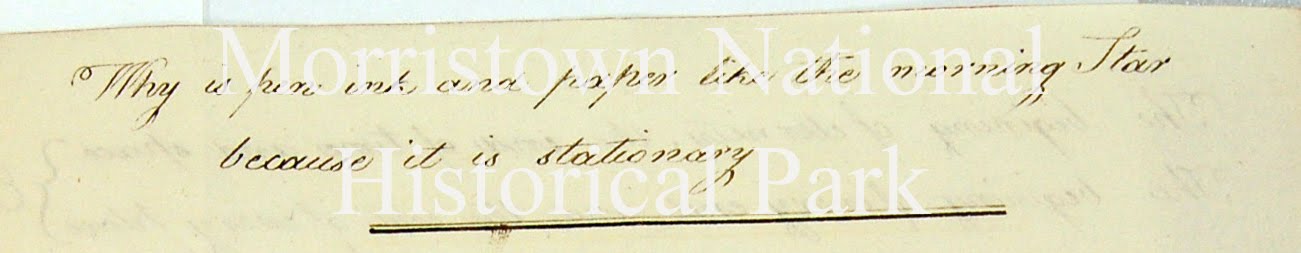 Why is pen ink and paper like the morning Star
because it is stationary
Morristown National
Historical Park